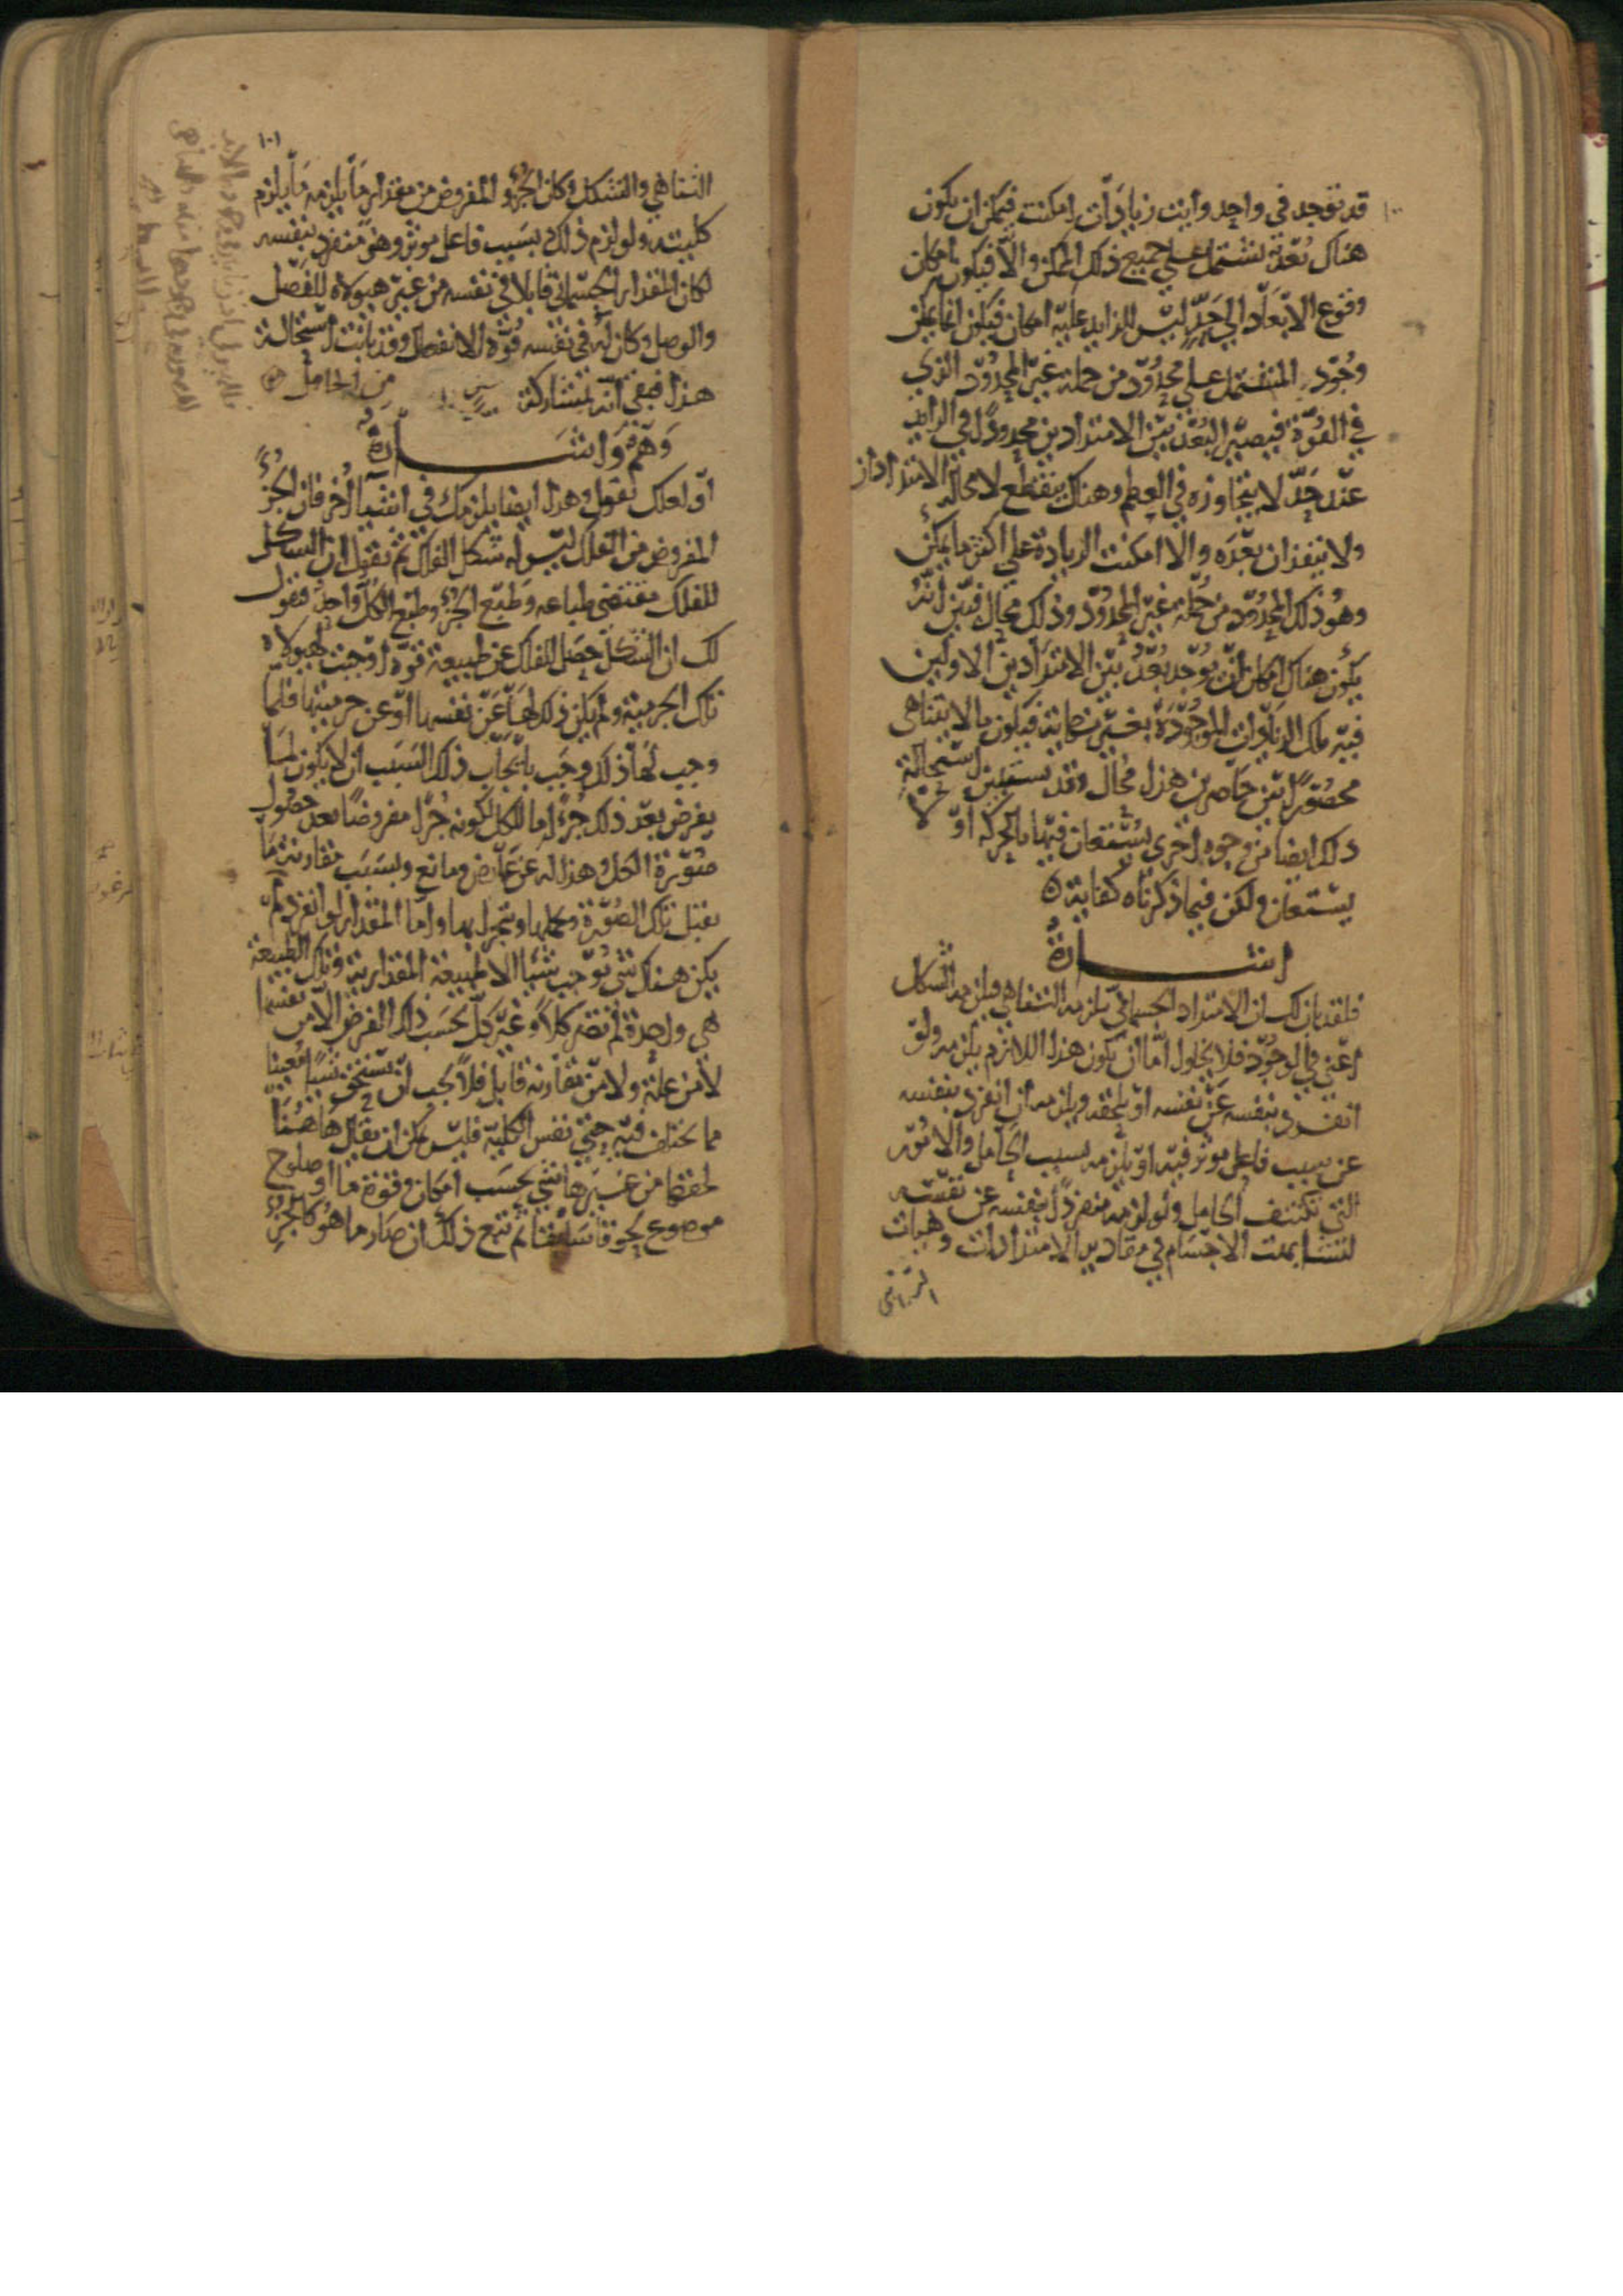 ١٠٠
قد توجد في واحد وايت زيادات امكنت فيمكن ان يكون
هناك بعد يشتمل على جميع ذلك الممكن والا فيكون امكان
وقوع الابعاد الى حد ليس للزايد عليه امكان فيكون انما يمكن
وجود المشتمل على محدود من جملة غير المحدود الذي
في القوة فيصير البعد بين الامتدادين محدودا في التزايد
عند حد لا يتجاوزه في العظم وهناك ينقطع لا محالة الامتدادان
ولا ينفذان بعده والا امكنت الزيادة على اكثر ما يمكن
وهو ذلك المحدود من جملة غير المحدود وذلك محال فبين انه
يكون هناك امكان ان يوجد بعد بين الامتدادين الاولين
فيه تلك الزيادات الموجودة بغير نهاية فيكون ما لا يتناهى
محصورا بين حاصرين هذا محال وقد يستبين استحالة
ذلك ايضا من وجوه اخرى يستعان فيها بالحركة او لا
يستعان ولكن فيما ذكرناه كفاية
اشارة
فلقد بان لك ان الامتداد الجسماني يلزمه التناهي فيلزمه الشكل
اعني في الوجود فلا يخلوا اما ان يكون هذا اللازم يلزمه ولو
انفرد بنفسه عن نفسه او يلحقه ويلزمه ان انفرد بنفسه
عن سبب فاعل موثر فيه او يلزمه بسبب الحامل والامور
التي تكتنف الحامل ولو لزمه منفردا بنفسه عن نفسه
لتشابهت الاجسام في مقادير الامتدادات وهيات
التناهي
١٠١
التناهي والتشكل وكان الجزو المفروض من مقدار ما يلزمه ما يلزم
كليته ولو لزم ذلك بسبب فاعل موثر وهو منفرد بنفسه
لكان المقدار الجسماني قابلا في نفسه من غير هيولاه للفصل
والوصل وكان له في نفسه قوة الانفصال وقد بانت استحالة
هذا فبقي انه بمشاركة من الحامل
وهم واشارة
او لعلك تقول وهذا ايضا يلزمك في اشيا اخر فان الجزء
المفروض من الفلك ليس له شكل الفلك ثم تقول ان الشكل
للفلك مقتضى طباعه وطبع الجزء وطبع الكل واحد فنقول
لك ان الشكل حصل للفلك عن طبيعة قوة اوجبت لهيولاه
تلك الجرمية ولم يكن ذلك لها عن نفسها او عن جرميتها فلما
وجب لها ذلك وجب بايجاب ذلك السبب ان لا يكون لما
يفرض بعد ذلك جزءا ما للكل لكونه جزا مفروضا بعد حصول
صورة الكل وهذا له عن عارض ومانع وبسبب مقارنة ما
يقبل تلك الصورة ويحملها ويتجزا بها واما المقدار لو انفرد لم
يكن هناك شي يوجب شيا الا طبيعة المقدارية وتلك الطبيعة
هي واحدة لم تصر كلا وغير كل بحسب ذلك الفرض الا من نفسها
لا من علة ولا من مقارنة قابل فلا يجب ان تستحق شيا معينا
مما يختلف فيه حتى نفس الكلية فليس يمكن ان يقال هاهنا
لحقها من غيرها شي بحسب امكان وقوة ما او صلوح
موضوع لحوقا سابقا ثم تبع ذلك ان صار ما هو كالجزء